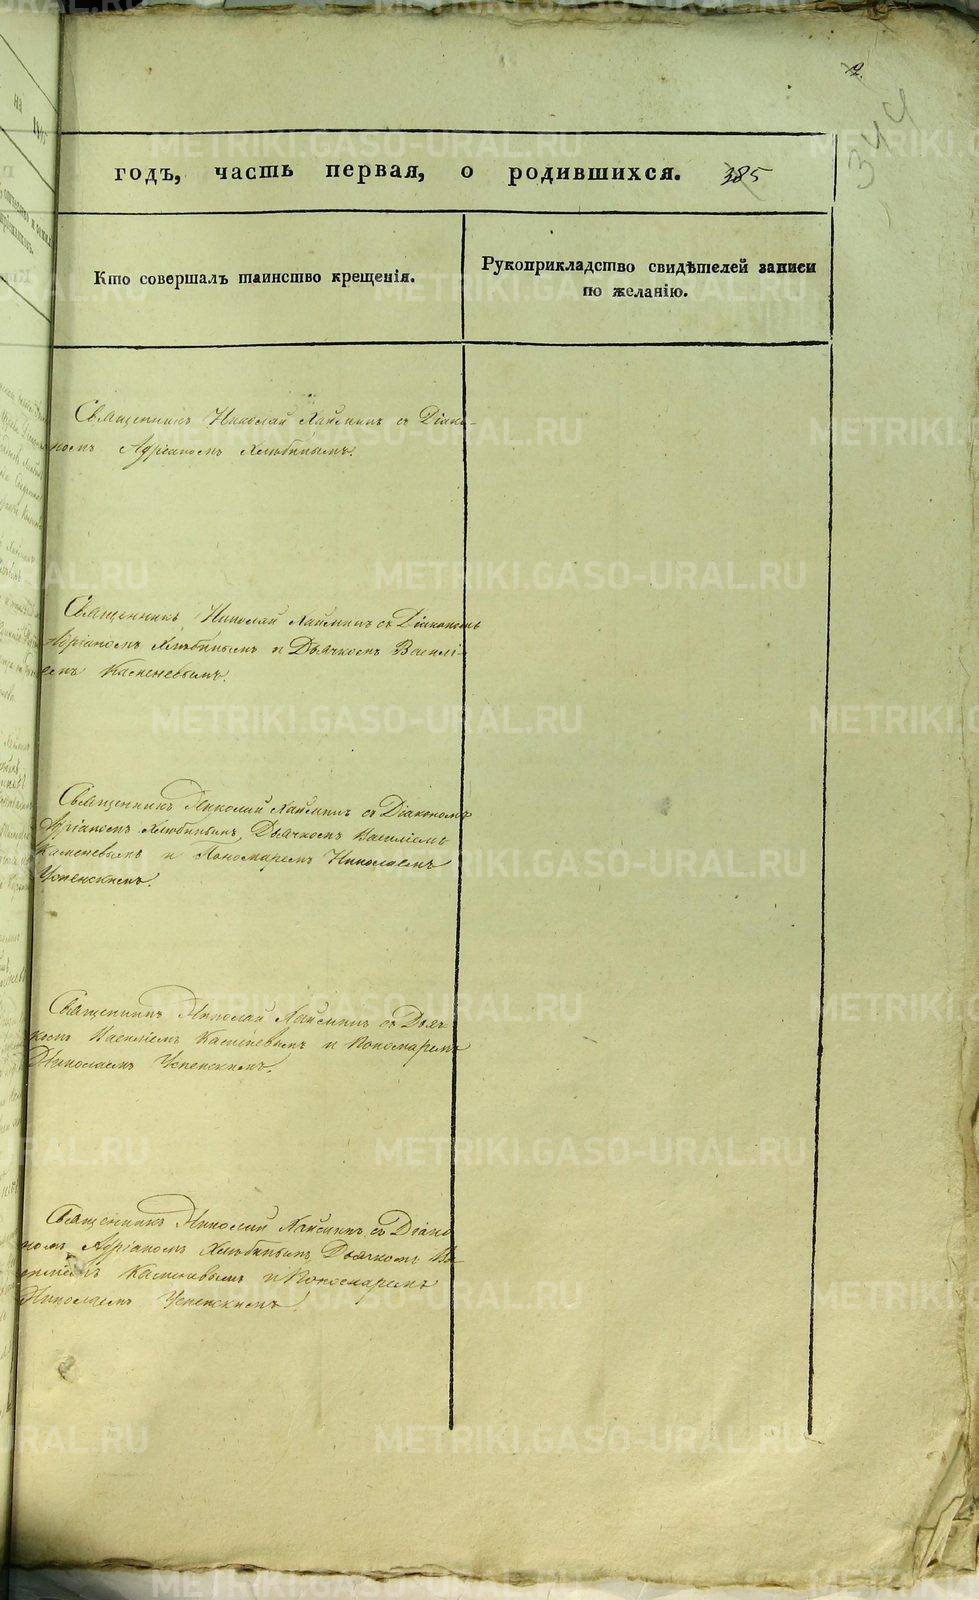 2.
344
годъ, часть первая, о родившихся. 385
Кто совершалъ таинство крещенія.
Рукоприкладство свидѣтелей записи
по желанію.
Священникъ Николай с Діако-
номъ Адріаномъ Хлѣбинымъ.
Священникъ Николай с Діакономъ
Адріаномъ Хлѣбинымъ и Дьячкомъ Василі-
емъ Каменевымъ.
Священникъ Николай с Діакономъ
Адріаномъ Хлѣбинымъ, Дьячкомъ Василіемъ
Каменевымъ и Пономаремъ Николаемъ
Успенскимъ.
Священникъ Николай с Дьяч-
комъ Василіемъ Каменевымъ и Пономаремъ
Николаемъ Успенскимъ.
Священникъ Николай съ Діако
номъ Адріаномъ Хлѣбинымъ, Дьячкомъ Ва-
силіемъ Каменевымъ и Пономаремъ
Николаемъ Успенскимъ.
METRIKI.GASO-URAL.RU